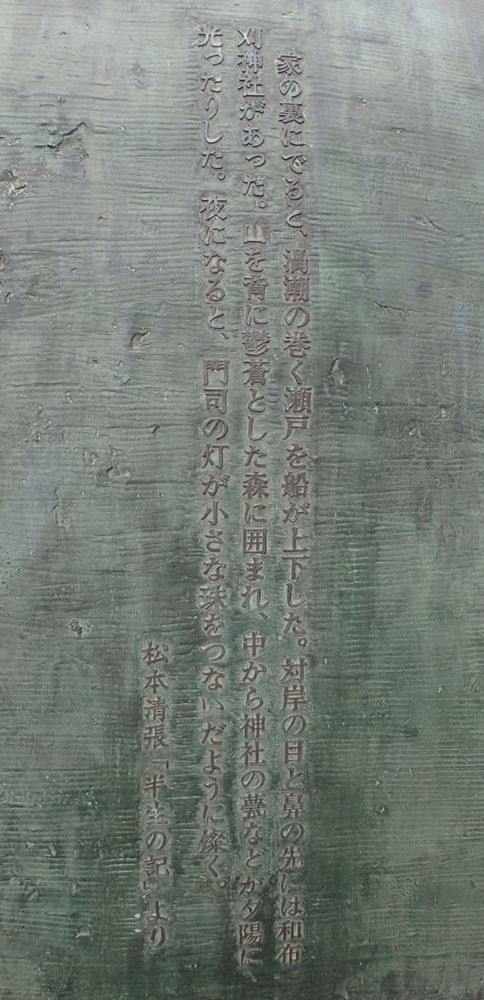 家の裏にでると、渦潮の巻く瀬戸を船が上下した。対岸の目と鼻の先には和布
刈神社があった。山を背に鬱蒼とした森に囲まれ、中から神社の甍などが夕陽に
光ったりした。夜になると、門司の灯が小さな珠をつないだように燦く。
松本清張「半生の記」より